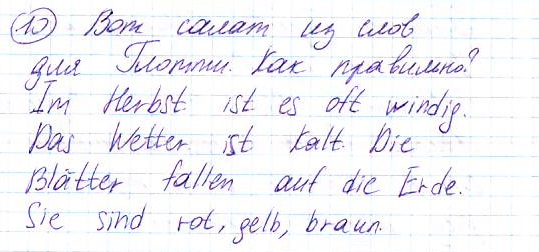 10 Вот салат из слов
для Плотти. Как правильно?
Im Herbst ist es oft windig.
Das Wetter ist kalt. Die
Blätter fallen auf die Erde.
Sie sind rot, gelb, braun.